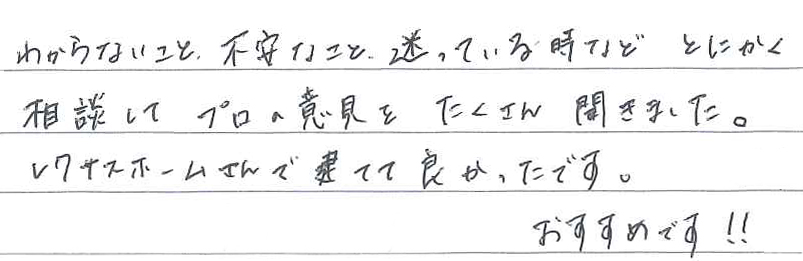 わからないこと、不安なこと、迷っている時など とにかく
相談して プロの意見を たくさん 聞きました。
レクサスホームさんで建てて良かったです。
おすすめです!!